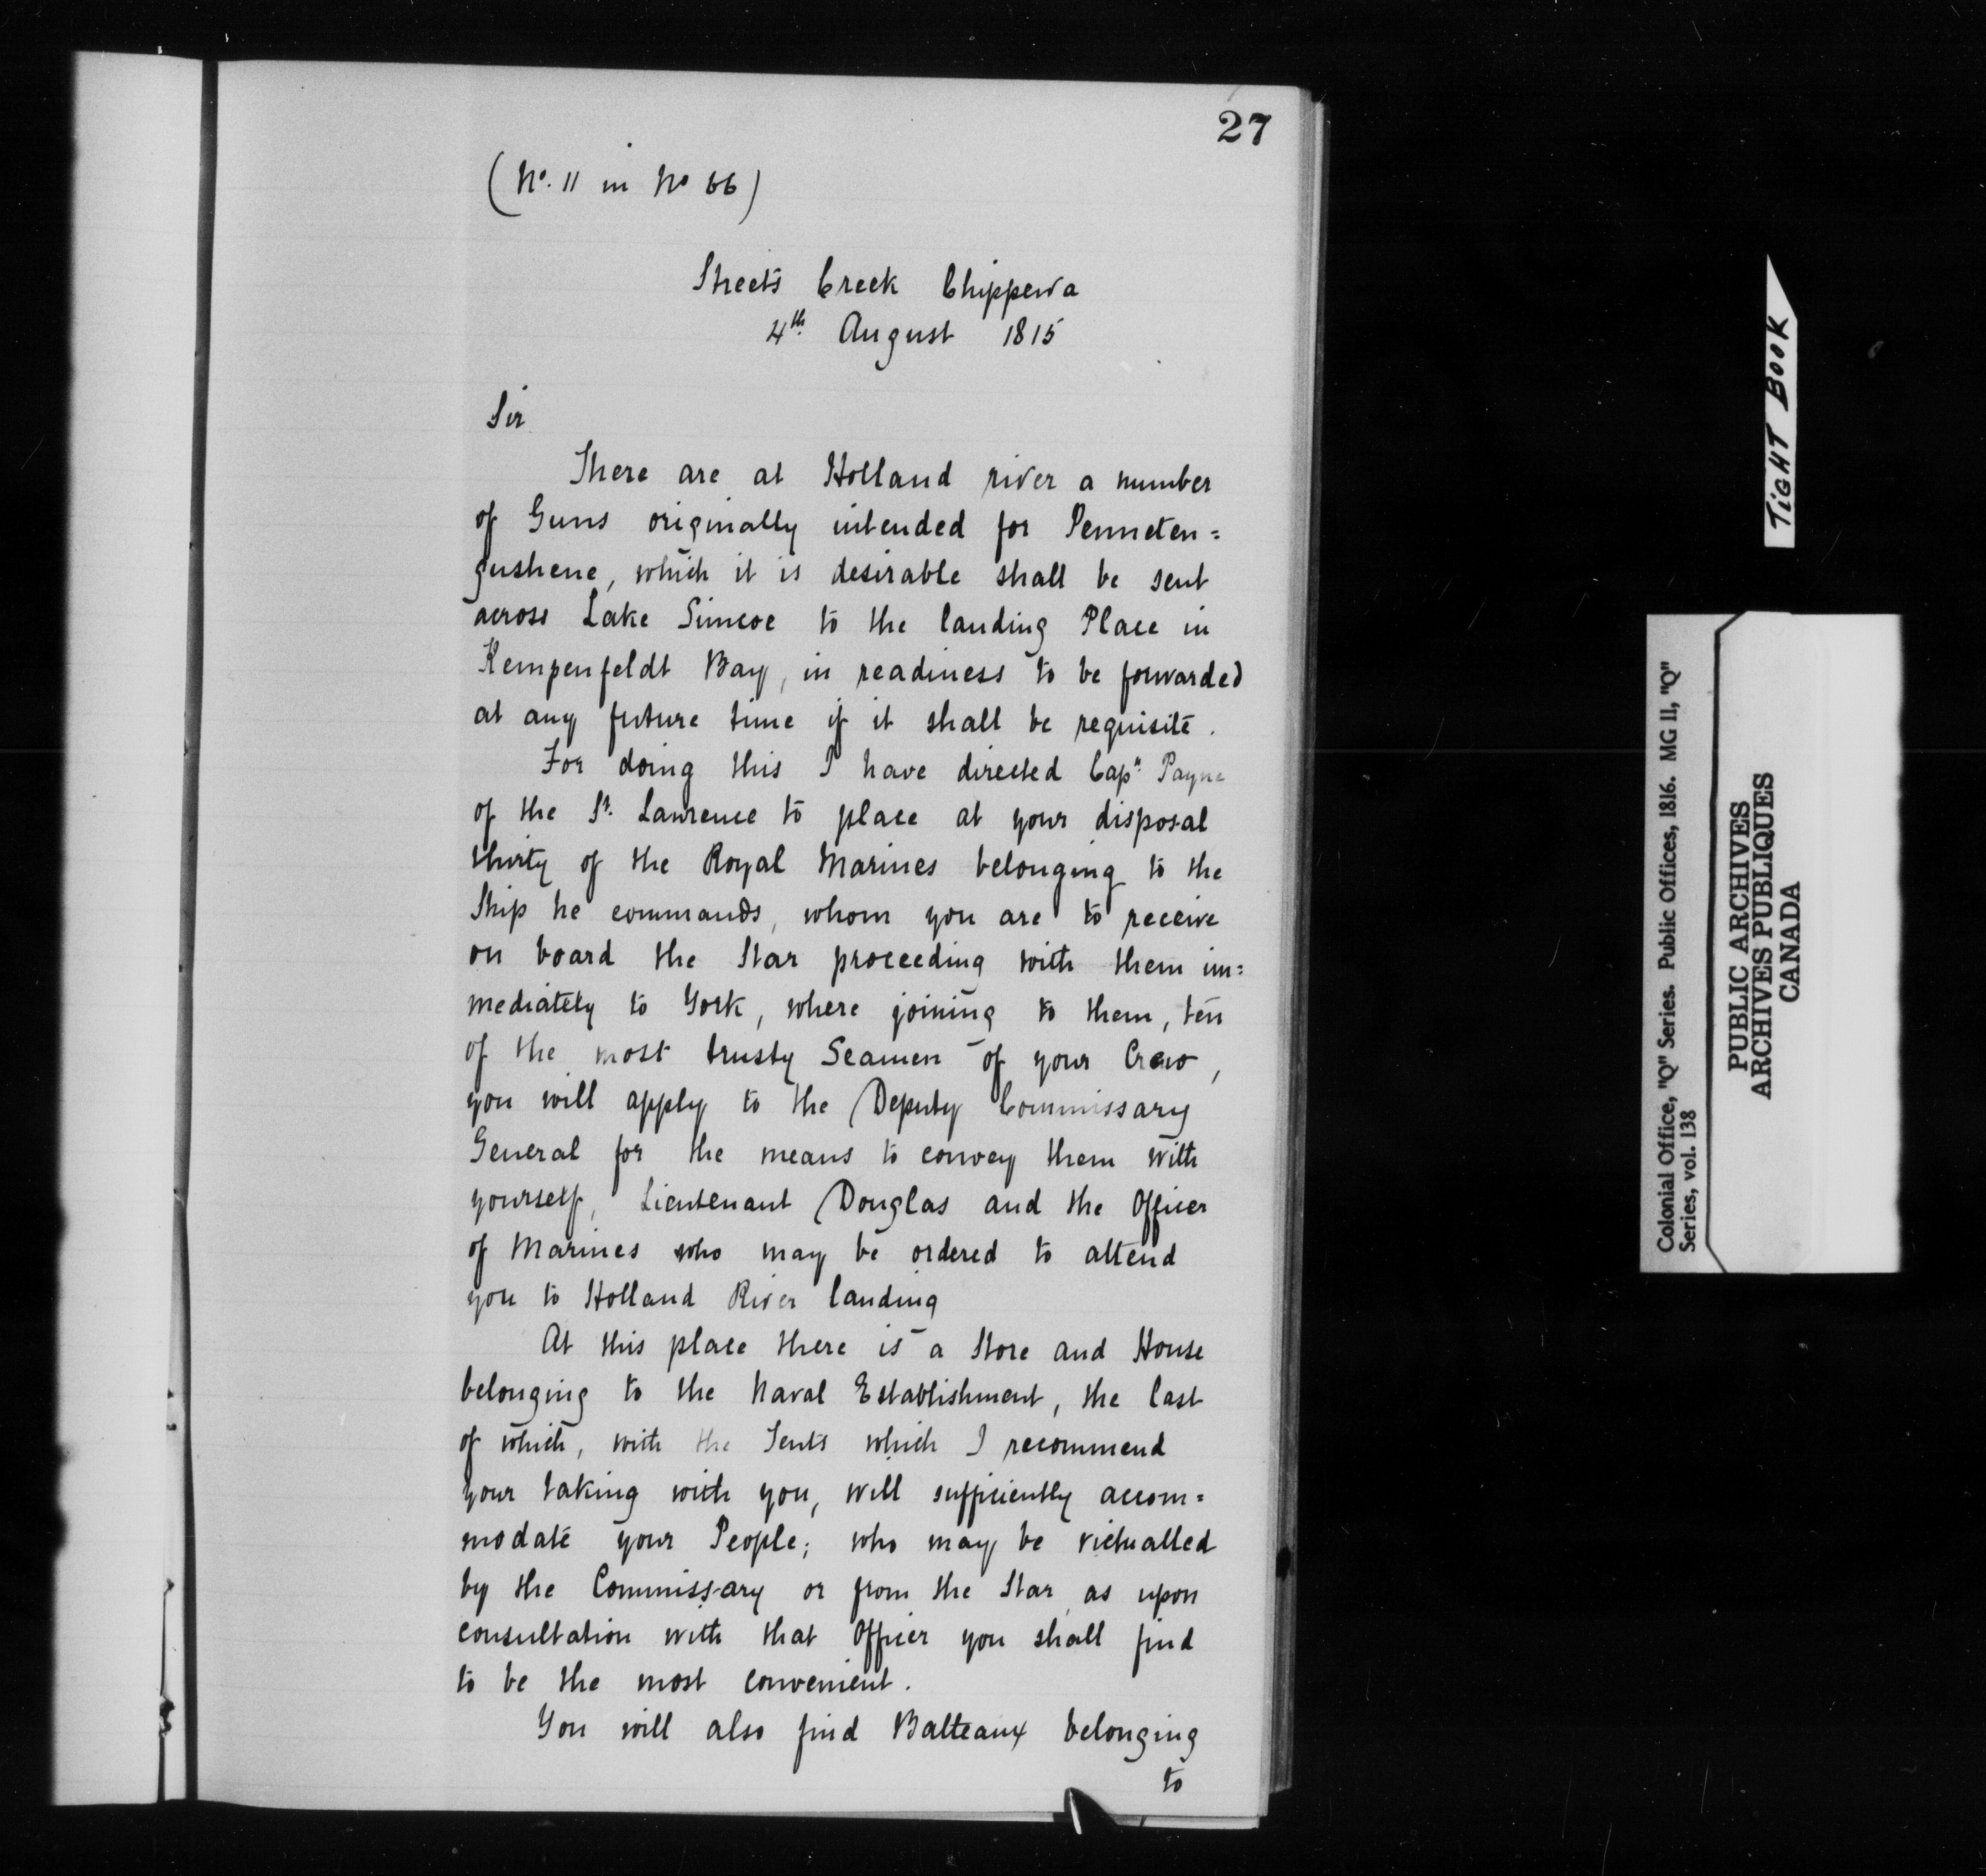 27
(No. 11 in No 66)
Streets Creek Chippewa
4th August 1815
Sir
There are at Holland river a number
of Guns originally intended for Penneten=
gushene, which it is desirable shall be sent
across Lake Simcoe to the landing Place in
Kempenfeldt Bay, in readiness to be forwarded
at any future time if it shall be requisite.
For doing this I have directed Capn. Payne
of the St. Lawrence to place at your disposal
thirty of the Royal Marines belonging to the
Ship he commands, whom you are to receive
on board the Star proceeding with them im=
mediately to York, where joining to them, ten
of the most trusty Seamen of your Crew,
you will apply to the Deputy Commissary
General for the means to convey them with
yourself, Lieutenant Douglas and the Officer
of Marines who may be ordered to attend
you to Holland River landing
At this place there is a Store and House
belonging to the Naval Establishment, the last
of which, with the Tents which I recommend
your taking with you, will sufficiently accom=
modate your People; who may be victualled
by the Commissary or from the Star, as upon
consultation with that Officer you shall find
to be the most convenient.
You will also find Batteaux belonging
to
TIGHT BOOK
Colonial Office, "Q" Series. Public Offices, 1816. MG 11, "Q"
Series, vol. 138
PUBLIC ARCHIVES
ARCHIVES PUBLIQUES
CANADA